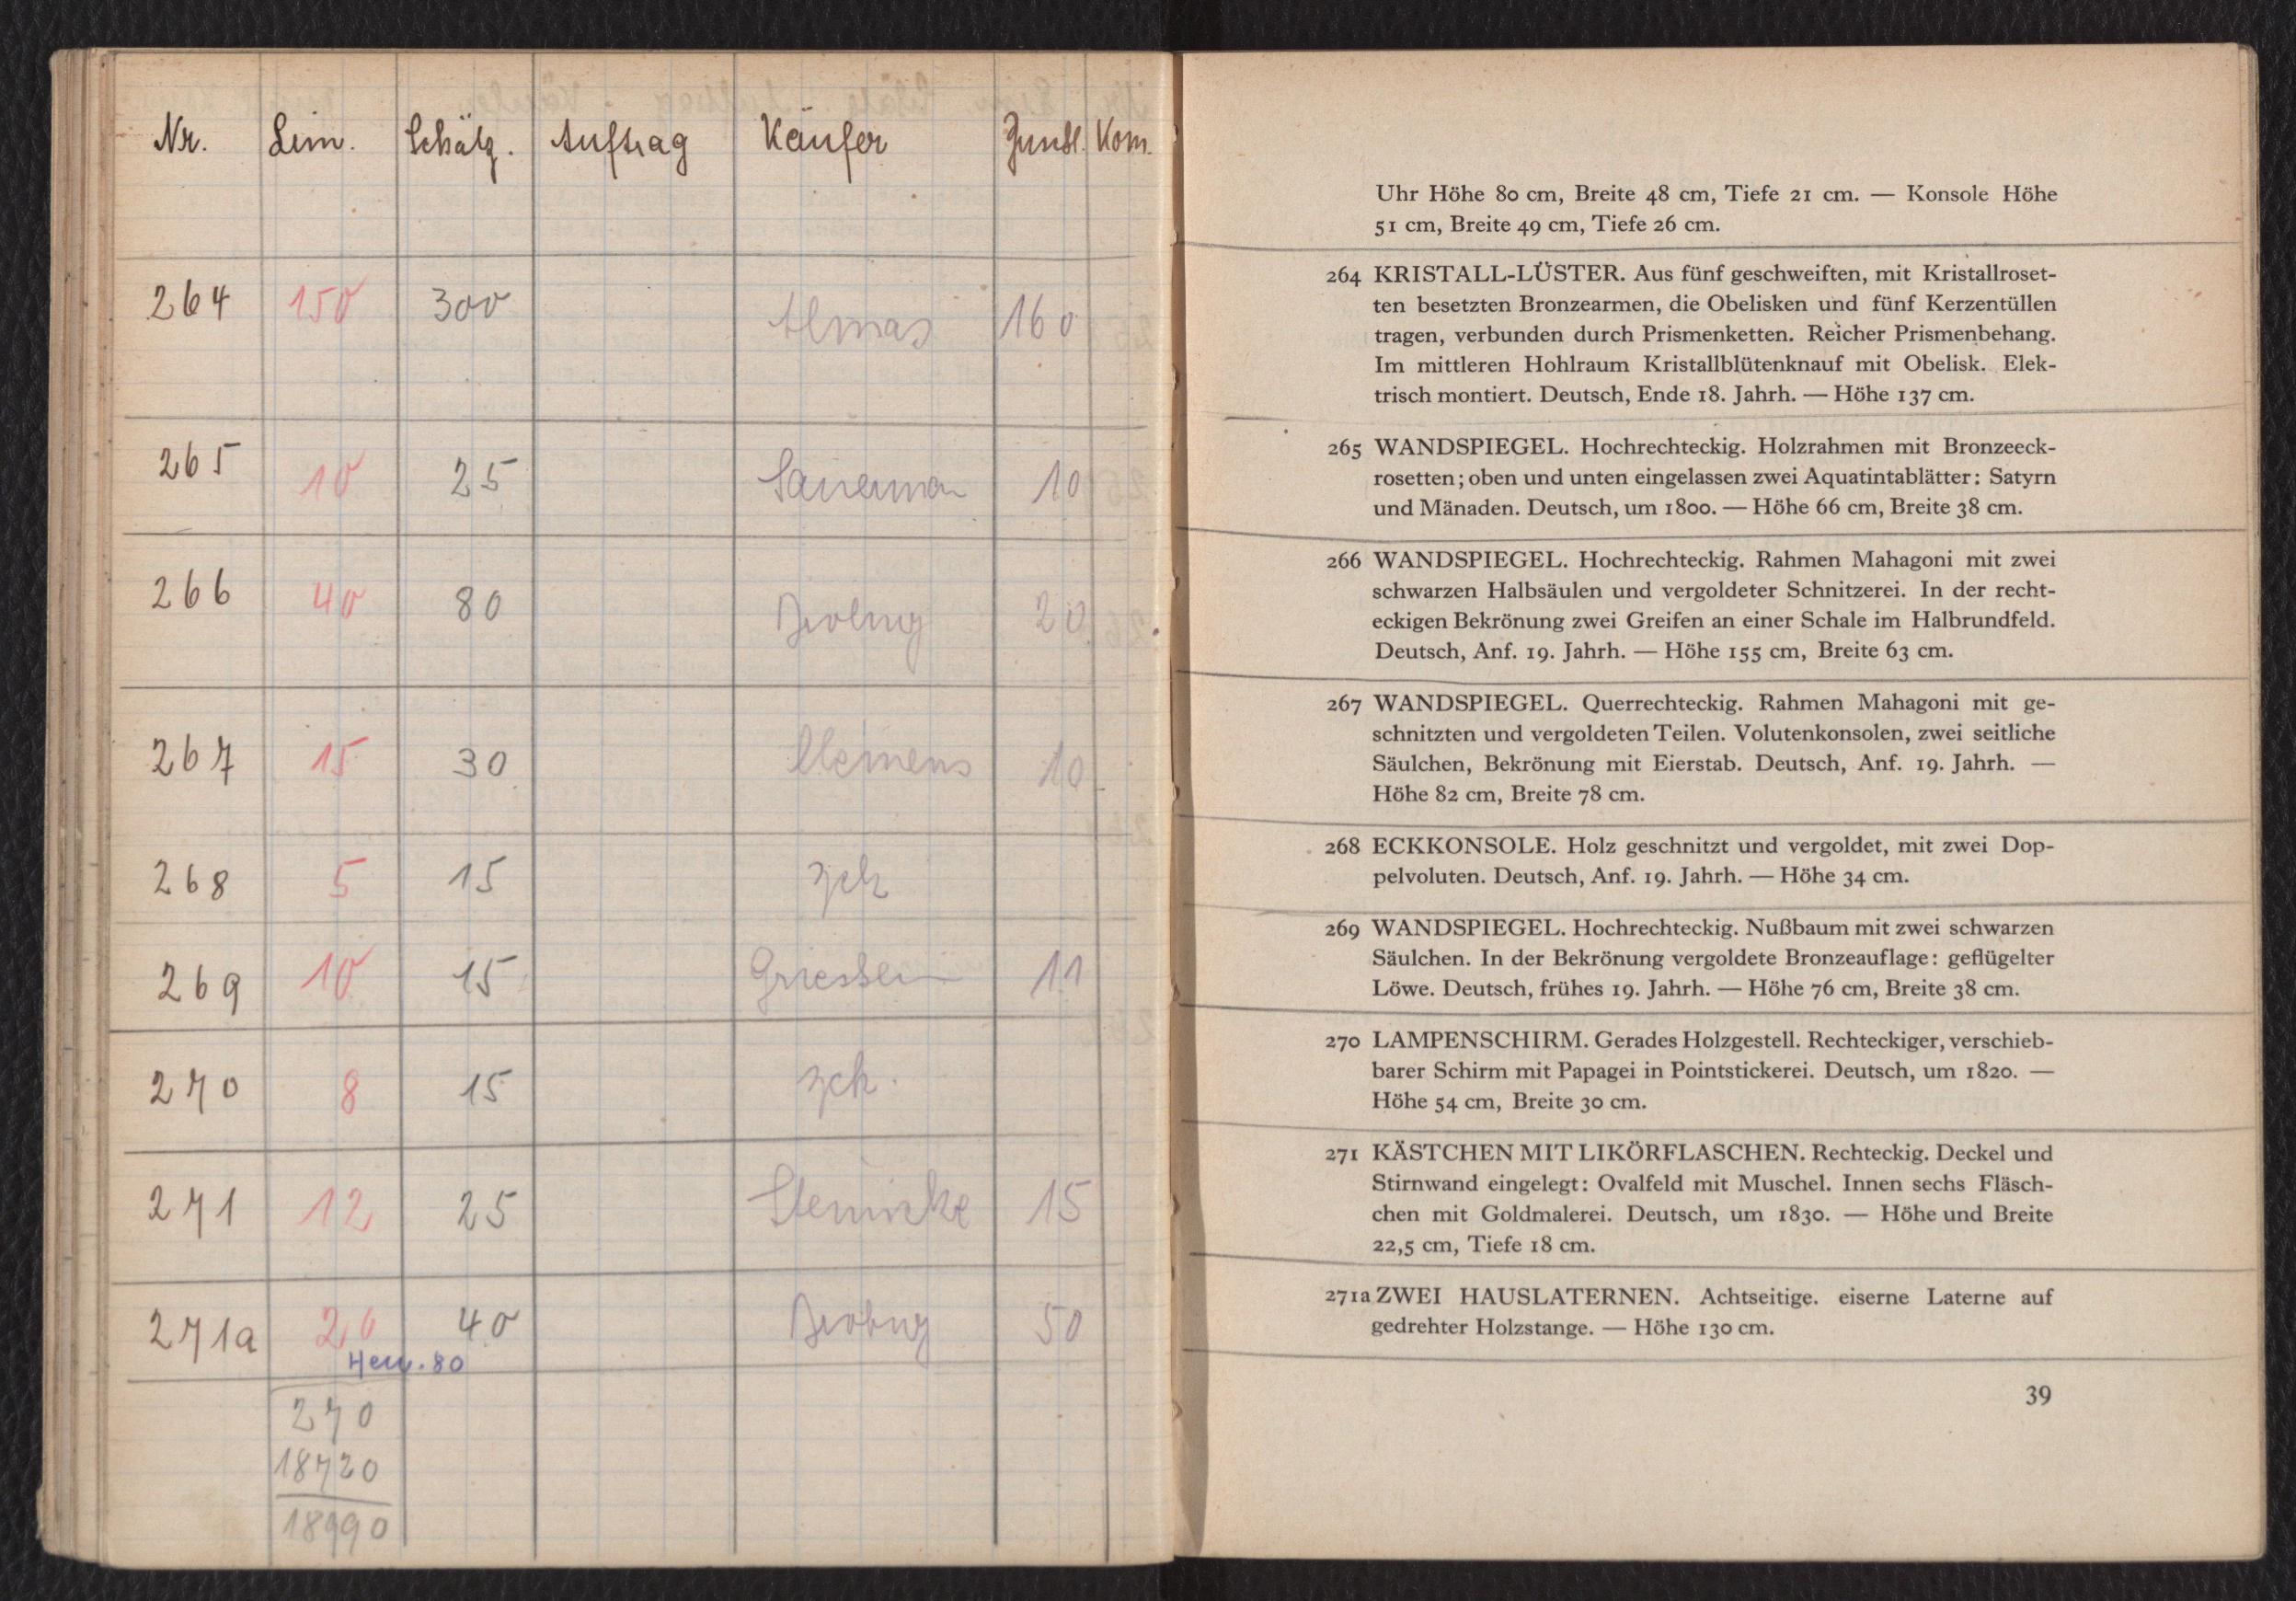 Nr. Lim. Schätz. Auftrag Käufer Zuschl. Kom.
264 150 300 Almas 160
265 10 25 10
266 40 80 20
267 15 30 Clemens 10
268 5 15 zck
269 10 15 11
270 8 15 zck.
271 12 25 15
271a 20 40 50
80
270
18720
18990
Uhr Höhe 80 cm, Breite 48 cm, Tiefe 21 cm. — Konsole Höhe
51 cm, Breite 49 cm, Tiefe 26 cm.
264 KRISTALL-LÜSTER. Aus fünf geschweiften, mit Kristallroset-
ten besetzten Bronzearmen, die Obelisken und fünf Kerzentüllen
tragen, verbunden durch Prismenketten. Reicher Prismenbehang.
Im mittleren Hohlraum Kristallblütenknauf mit Obelisk. Elek-
trisch montiert. Deutsch, Ende 18. Jahrh. — Höhe 137 cm.
265 WANDSPIEGEL. Hochrechteckig. Holzrahmen mit Bronzeeck-
rosetten; oben und unten eingelassen zwei Aquatintablätter: Satyrn
und Mänaden. Deutsch, um 1800. — Höhe 66 cm, Breite 38 cm.
266 WANDSPIEGEL. Hochrechteckig. Rahmen Mahagoni mit zwei
schwarzen Halbsäulen und vergoldeter Schnitzerei. In der recht-
eckigen Bekrönung zwei Greifen an einer Schale im Halbrundfeld.
Deutsch, Anf. 19. Jahrh. — Höhe 155 cm, Breite 63 cm.
267 WANDSPIEGEL. Querrechteckig. Rahmen Mahagoni mit ge-
schnitzten und vergoldeten Teilen. Volutenkonsolen, zwei seitliche
Säulchen, Bekrönung mit Eierstab. Deutsch, Anf. 19. Jahrh. —
Höhe 82 cm, Breite 78 cm.
268 ECKKONSOLE. Holz geschnitzt und vergoldet, mit zwei Dop-
pelvoluten. Deutsch, Anf. 19. Jahrh. — Höhe 34 cm.
269 WANDSPIEGEL. Hochrechteckig. Nußbaum mit zwei schwarzen
Säulchen. In der Bekrönung vergoldete Bronzeauflage: geflügelter
Löwe. Deutsch, frühes 19. Jahrh. — Höhe 76 cm, Breite 38 cm.
270 LAMPENSCHIRM. Gerades Holzgestell. Rechteckiger, verschieb-
barer Schirm mit Papagei in Pointstickerei. Deutsch, um 1820. —
Höhe 54 cm, Breite 30 cm.
271 KÄSTCHEN MIT LIKÖRFLASCHEN. Rechteckig. Deckel und
Stirnwand eingelegt: Ovalfeld mit Muschel. Innen sechs Fläsch-
chen mit Goldmalerei. Deutsch, um 1830. — Höhe und Breite
22,5 cm, Tiefe 18 cm.
271a ZWEI HAUSLATERNEN. Achtseitige. eiserne Laterne auf
gedrehter Holzstange. — Höhe 130 cm.
39